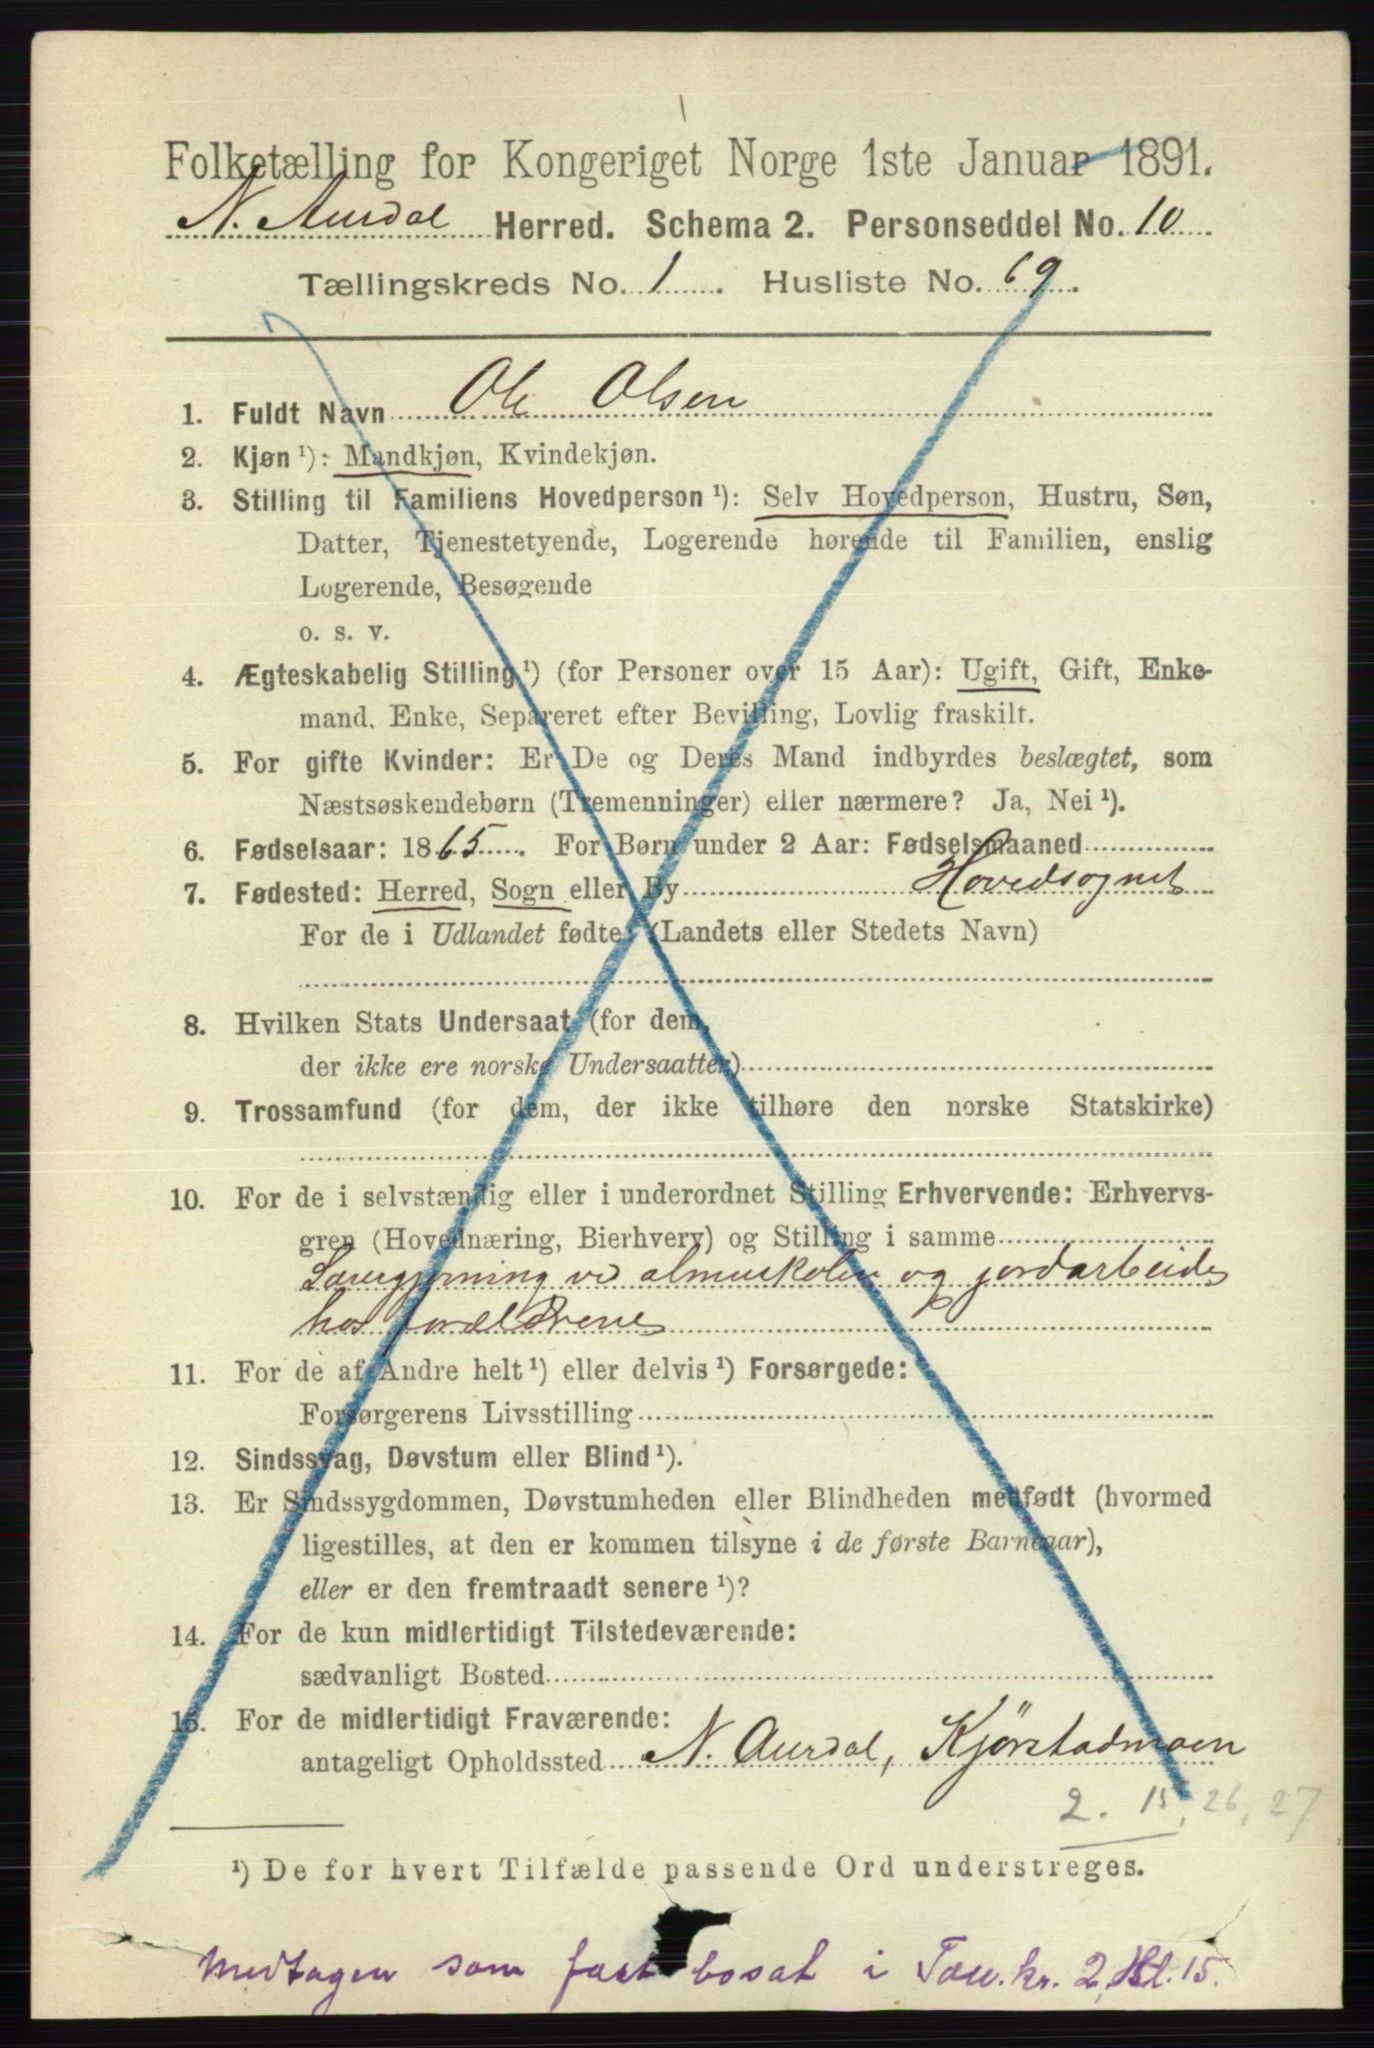 Folketælling for Kongeriget Norge 1ste Januar 1891.
N. Aurdal Herred. Schema 2. Personseddel No. 10
Tællingskreds No. 1. Husliste No. 69.
1. Fuldt Navn Ole Olsen
2. Kjøn ¹): Mandkjøn, Kvindekjøn.
3. Stilling til Familiens Hovedperson ¹): Selv Hovedperson, Hustru, Søn,
Datter, Tjenestetyende, Logerende hørende til Familien, enslig
Logerende, Besøgende
o. s. v.
4. Ægteskabelig Stilling ¹) (for Personer over 15 Aar): Ugift, Gift, Enke-
mand, Enke, Separeret efter Bevilling, Lovlig fraskilt.
5. For gifte Kvinder: Er De og Deres Mand indbyrdes beslægtet, som
Næstsøskendebørn (Tremenninger) eller nærmere? Ja, Nei ¹).
6. Fødselsaar: 1865. For Børn under 2 Aar: Fødselsmaaned
7. Fødested: Herred, Sogn eller By Hovedsognet
For de i Udlandet fødte: (Landets eller Stedets Navn)
8. Hvilken Stats Undersaat (for dem,
der ikke ere norske Undersaatter)
9. Trossamfund (for dem, der ikke tilhøre den norske Statskirke)
10. For de i selvstændig eller i underordnet Stilling Erhvervende: Erhvervs-
gren (Hovednæring, Bierhverv) og Stilling i samme
Lærergjerning ved almueskolen og jordarbeide
hos forældrene
11. For de af Andre helt ¹) eller delvis ¹) Forsørgede:
Forsørgerens Livsstilling
12. Sindssvag, Døvstum eller Blind ¹).
13. Er Sindssygdommen, Døvstumheden eller Blindheden medfødt (hvormed
ligestilles, at den er kommen tilsyne i de første Barneaar),
eller er den fremtraadt senere ¹)?
14. For de kun midlertidigt Tilstedeværende:
sædvanligt Bosted
15. For de midlertidigt Fraværende:
antageligt Opholdssted N. Aurdal, Kjørstadmoen
2. 15, 26, 27
¹) De for hvert Tilfælde passende Ord understreges.
Medtagen som fast bosat i Tæll. kr. 2, Hl. 15.